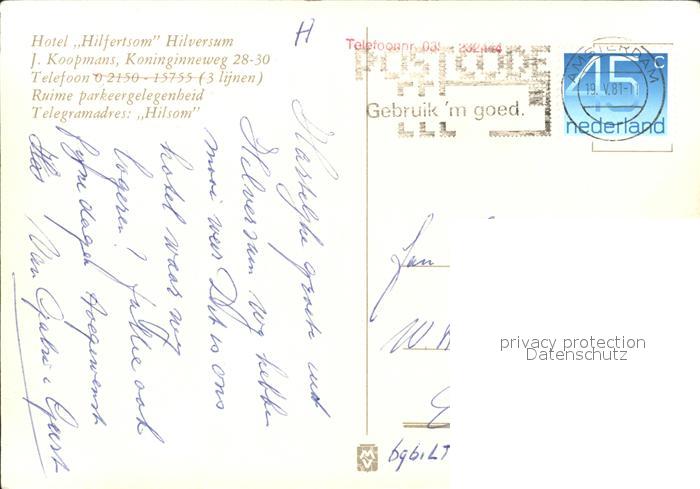 Hotel „Hilfertsom” Hilversum
J. Koopmans, Koninginneweg 28-30
Telefoon 0 2150 - 15755 (3 lijnen)
Ruime parkeergelegenheid
Telegramadres: „Hilsom”
H
Telefoonnr. 03
POSTCODE
Gebruik 'm goed.
AMSTERDAM
19.V.81-1
45 c
nederland
Hartelijke groete uit
Hilversum wij hebben
mooi weer Dit is ons
hotel waar wij
logeren. Jullie ook
fijne dagen toegewenst
Van
Jan
W
privacy protection
Datenschutz
MV